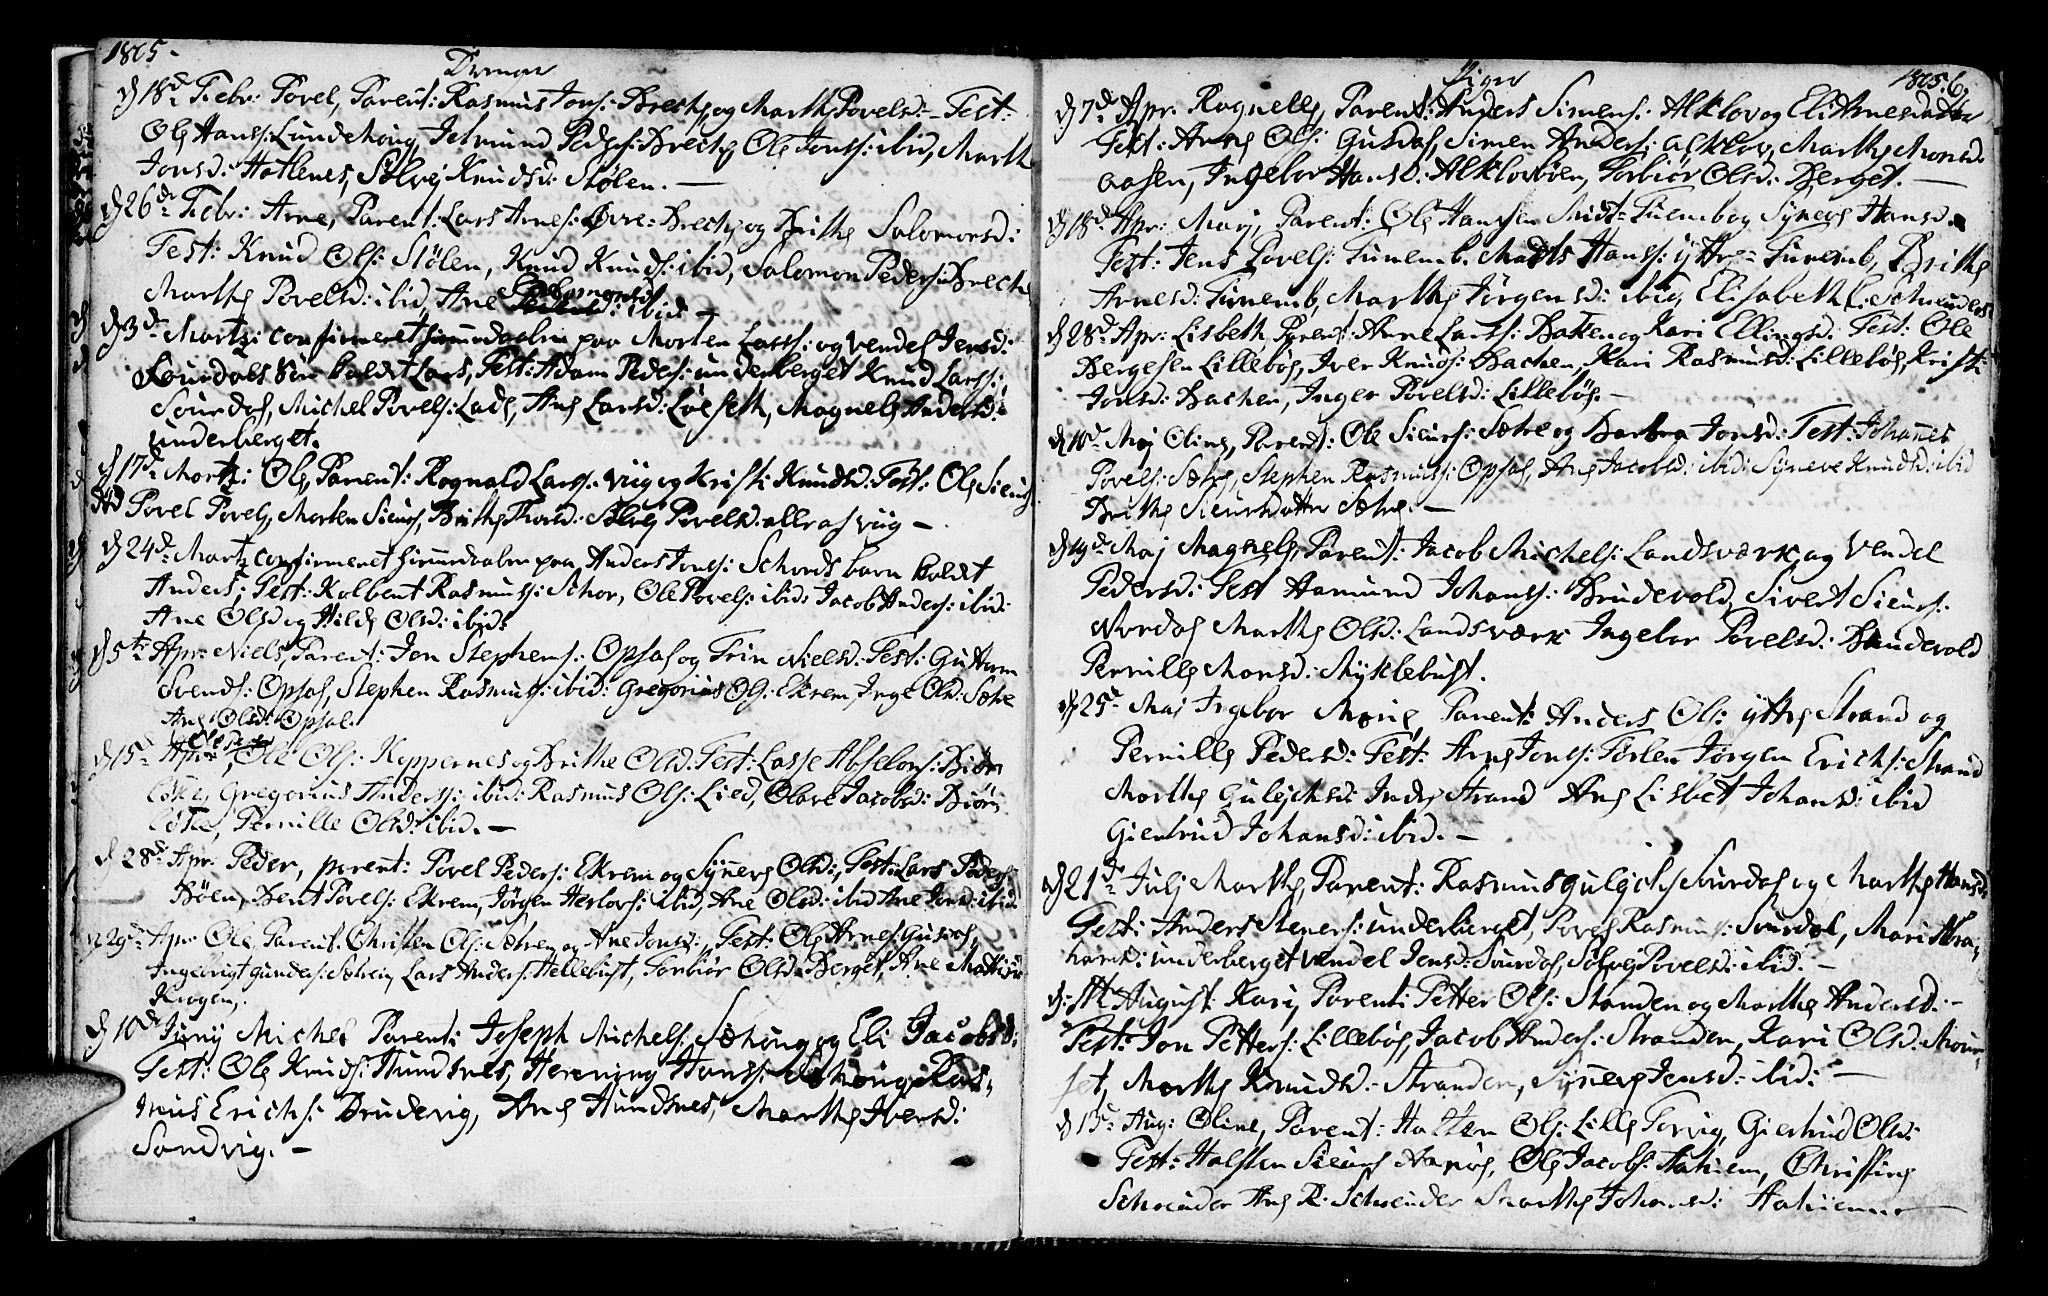 1805 -
Drenge
d 18d Febr: Povel, Parent: Rasmus Jons: Breche, og Marthe Povelsd: - Test:
Ole Hans: Lundehoug, Jetmund Peders: Breche, Ole Jonss: ibid, Marthe
Jonsd: Hatlenes, Sølvej Knudsd: Stølen. —
d 26d Febr: Arne, Parent: Lars Arnes: Øvre-Breche og Brithe Salomonsd:
Test: Knud Ols: Stølen, Knud Knuds: ibid, Salomon Peders: Breche
Marthe Povelsd: ibid, Ane Salomonsd: ibid —
d 3d Martz: confirmeret hiemmedaaben paa Morten Larss: og Vendel Jensd:
Sourdals Søn kaldt Lars, Test: Adam Peders: underberget Knud Larss:
Sourdal, Michel Povels: Lade, Ane Larsd: Løeseth, Magnele Andersd:
underberget.
d 17d Martz: Ole, Parent: Rognald Larss: Viig og Kristi Knudsd: Test: Ole Siurs:
Povel Povels, Morten Siurs, Brithe Thored: Sølvej Povelsd: alle af Viig —
d 24d Martz confirmeret hiemmedaaben paa Anders Jonss: Schords barn kaldt
Anders; Test: Kolbent Rasmuss: Schor, Ole Povels: ibid: Jacob Anders: ibid:
Ane Olsd og Hilde Olsd: ibid:
d 5te Apr: Niels, Parent: Jon Stephens: Opsal og Trin Nielsd: Test: Guttorm
Svends: Opsal, Stephen Rasmuss: ibid: Gregorius Ols: Ekrem, Inge Olsd: Sætre
Ane Olsd: Opsal.
d 15d Apr: Ole Ols: Koppernes og Brithe Olsd: Test: Lasse Abselons: Biør
løke, Gregorius Anderss: ibid: Rasmus Ols: Lied, Olave Jacobsd: Biør
løke, Pernille Olsd: ibid. —
d 28d Apr: Peder, parent: Povel Peders: Ekrem og Synneve Olsd: Test: Lars Peders:
Bøen, Bent Povels: Ekrem, Jørgen Herlovs: ibid, Ane Olsd: ibid Ane Jonsd: ibid.
d 29d Apr: Ole, Parent: Christen Ols: Sætren og Ane Jonsd:, Test: Ole Arnes: Gusdal,
Ingebrigt Gunders: Sætren, Lars Anders: Hellebust, Torbiør Olsd: Berget, Ane
Krogen.
d 10d Junij Michel Parent: Joseph Michels: Sæhoug og Eli Jacobsd:
Test: Ole Knuds: Hundsnes, Henning Hanss: Sæhoug, Ras-
mus Erichs: Brudevig, Ane Hundsnes, Marthe Iversd:
Sandvig. —
Piger
1805. 6,
d 7d Apr: Rognele, Parent: Anders Simens: Alklov og Eli Arnesdatter
Test: Arne Ols: Gusdal, Simen Anders: Alklov, Marthe Monsd:
Aasen, Ingebor Hansd: Alklovbøen, Torbiør Olsd: Berget. —
d 18d Apr: Mary, Parent: Ole Hanssen Midt-Tunemb og Syneve Hansd.
Test: Jens Povels: Tunemb. Mads Hanss: Yttre-Tunemb, Brithe
Arnesd: Tunemb, Marthe Jørgensd: ibid, Elisabeth C. Schrøuders
d 28d Apr: Lisbeth, Parent: Arne Larss: Bakken og Kari Ellingsd: Test: Ole
Bergesen Lillebøe, Iver Knuds: Bachen, Kari Rasmusd: Lillebøe, Kristi
Jonsd: Bachen, Inger Povelsd: Lillebøe. —
d 10d Maj Oline, Parent: Ole Siurs: Sætre og Barbra Jonsd: Test: Johannes
Povels: Sætre, Stephen Rasmuss: Opsal, Ane Jacobsd: ibid: Syneve Knudsd: ibid
Brithe Siursdatter Sætre. —
d 19d Maj Magnele, Parent: Jacob Michels: Landsværk og Vendel
Pedersd: Test Hamund Johanss: Brudevold, Sivert Siurs:
Nordal Marthe Olsd: Landsværk Ingebor Povelsd: Brudevold
Pernille Monsd: Myklebust.
d 25d Maj Ingebor Marie, Parent: Anders Ols: Yttre Strand og
Pernille Pedersd: Test: Arne Jonss: Tørlen Jørgen Erichs: Strand
Marthe Gulichsd: Indre Strand Ane Lisbet Johansd: ibid
Giertrud Johansd: ibid. —
d 21d Julj Marthe, Parent: Rasmus Gulichs: Sourdal og Marthe Hansd:
Test: Anders Steners: underberget, Povel Rasmuss: Sourdal, Mari Abra-
hamsd: underberget Vendel Jensd: Sourdal, Sølvej Povelsd: ibid. —
d: 11t August: Kari, Parent: Petter Ols: Standen og Marthe Andersd: —
Test: Jon Petters: Lillebøe, Jacob Anders: Stranden, Kari Olsd: Mour
set, Marthe Knudsd: Stranden, Syneve Jensd: ibid: —
d 15d Aug: Oline, Parent: Halsten Ols: Lille Torvig, Giertrud Olsd:
Test: Halsten Siurs: Ole Jacobs: Aahiem, Christine
Schreuder Ane R. Schreuder Marthe Johansd: Aahiem —